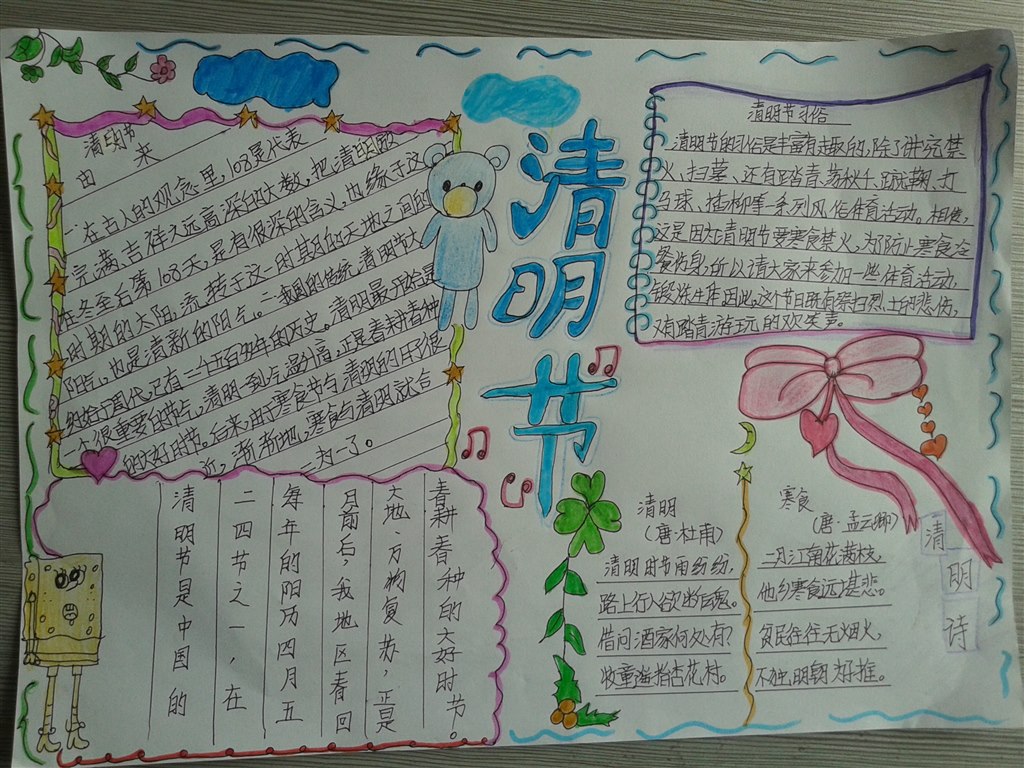 清明节
清明节
由来
一在古人的观念里,108是代表
完满、吉祥、久远、高深的大数,把清明放
在冬至后第108天,是有很深的含义,也缘于这
时期的太阳,流转于这一时期的天地之间的
阳气,也是清新的阳气。二我国的传统清明节大
约始于周代,已有二千五百多年的历史。清明最开始是
个很重要的节气,清明一到,气温升高,正是春耕春种
的大好时节。后来,由于寒食节与清明的日子很
近,渐渐地,寒食与清明就合
二为一了。
清明节习俗
清明节的习俗是丰富有趣的,除了讲究禁
火、扫墓、还有踏青、荡秋千、蹴鞠、打
马球、插柳等一系列风俗体育活动。相传,
这是因为清明节要寒食禁火,为防止寒食冷
餐伤身,所以请大家来参加一些体育活动,
锻炼生体因此,这个节日既有祭扫烈士的悲伤,
又有踏青游玩的欢笑声。
清明节是中国的
二四节之一,在
每年的阳历四月五
日前后,我地区春回
大地,万物复苏,正是
春耕春种的大好时节。
清明
(唐·杜甫)
清明时节雨纷纷,
路上行人欲断魂。
借问酒家何处有?
牧童遥指杏花村。
寒食
(唐·孟云卿)
二月江南花满枝,
他乡寒食远堪悲。
贫民往往无烟火,
不独,明朝为好推。
清
明
诗